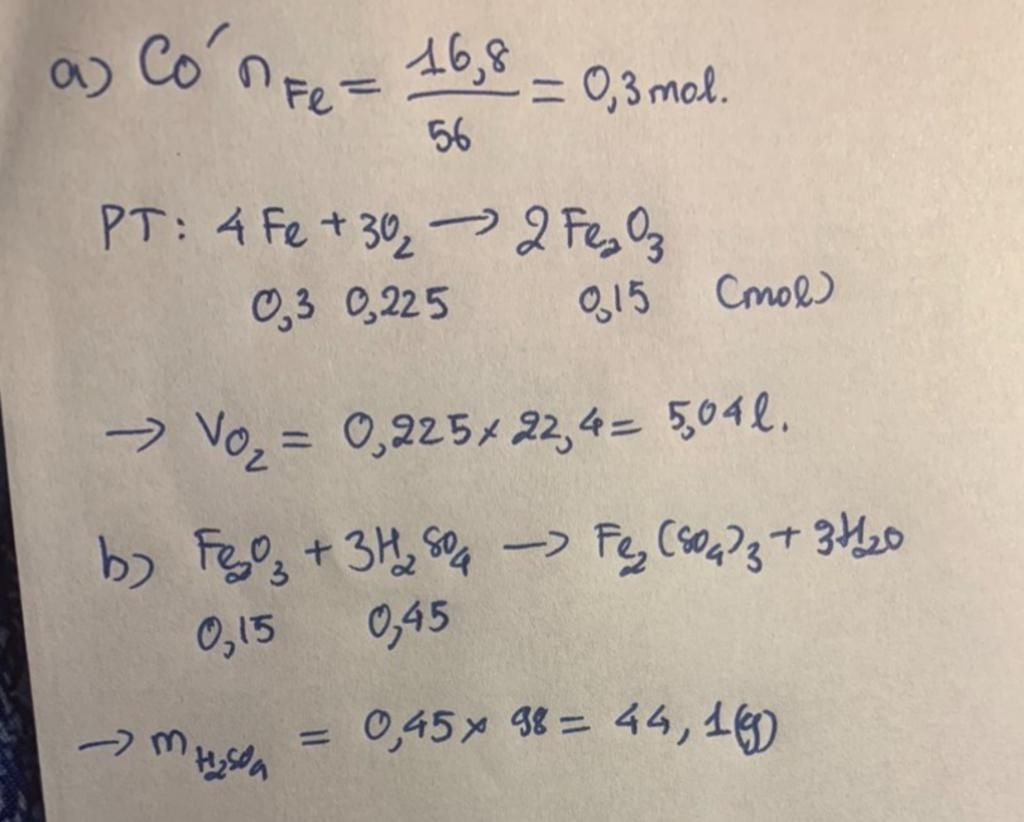 a) Có n Fe = 16,8 / 56 = 0,3 mol.
PT: 4 Fe + 3O2 → 2 Fe2O3
0,3 0,225 0,15 (mol)
→ VO2 = 0,225 x 22,4 = 5,04 l.
b) Fe2O3 + 3H2SO4 → Fe2(SO4)3 + 3H2O
0,15 0,45
→ m H2SO4 = 0,45 x 98 = 44,1(g)